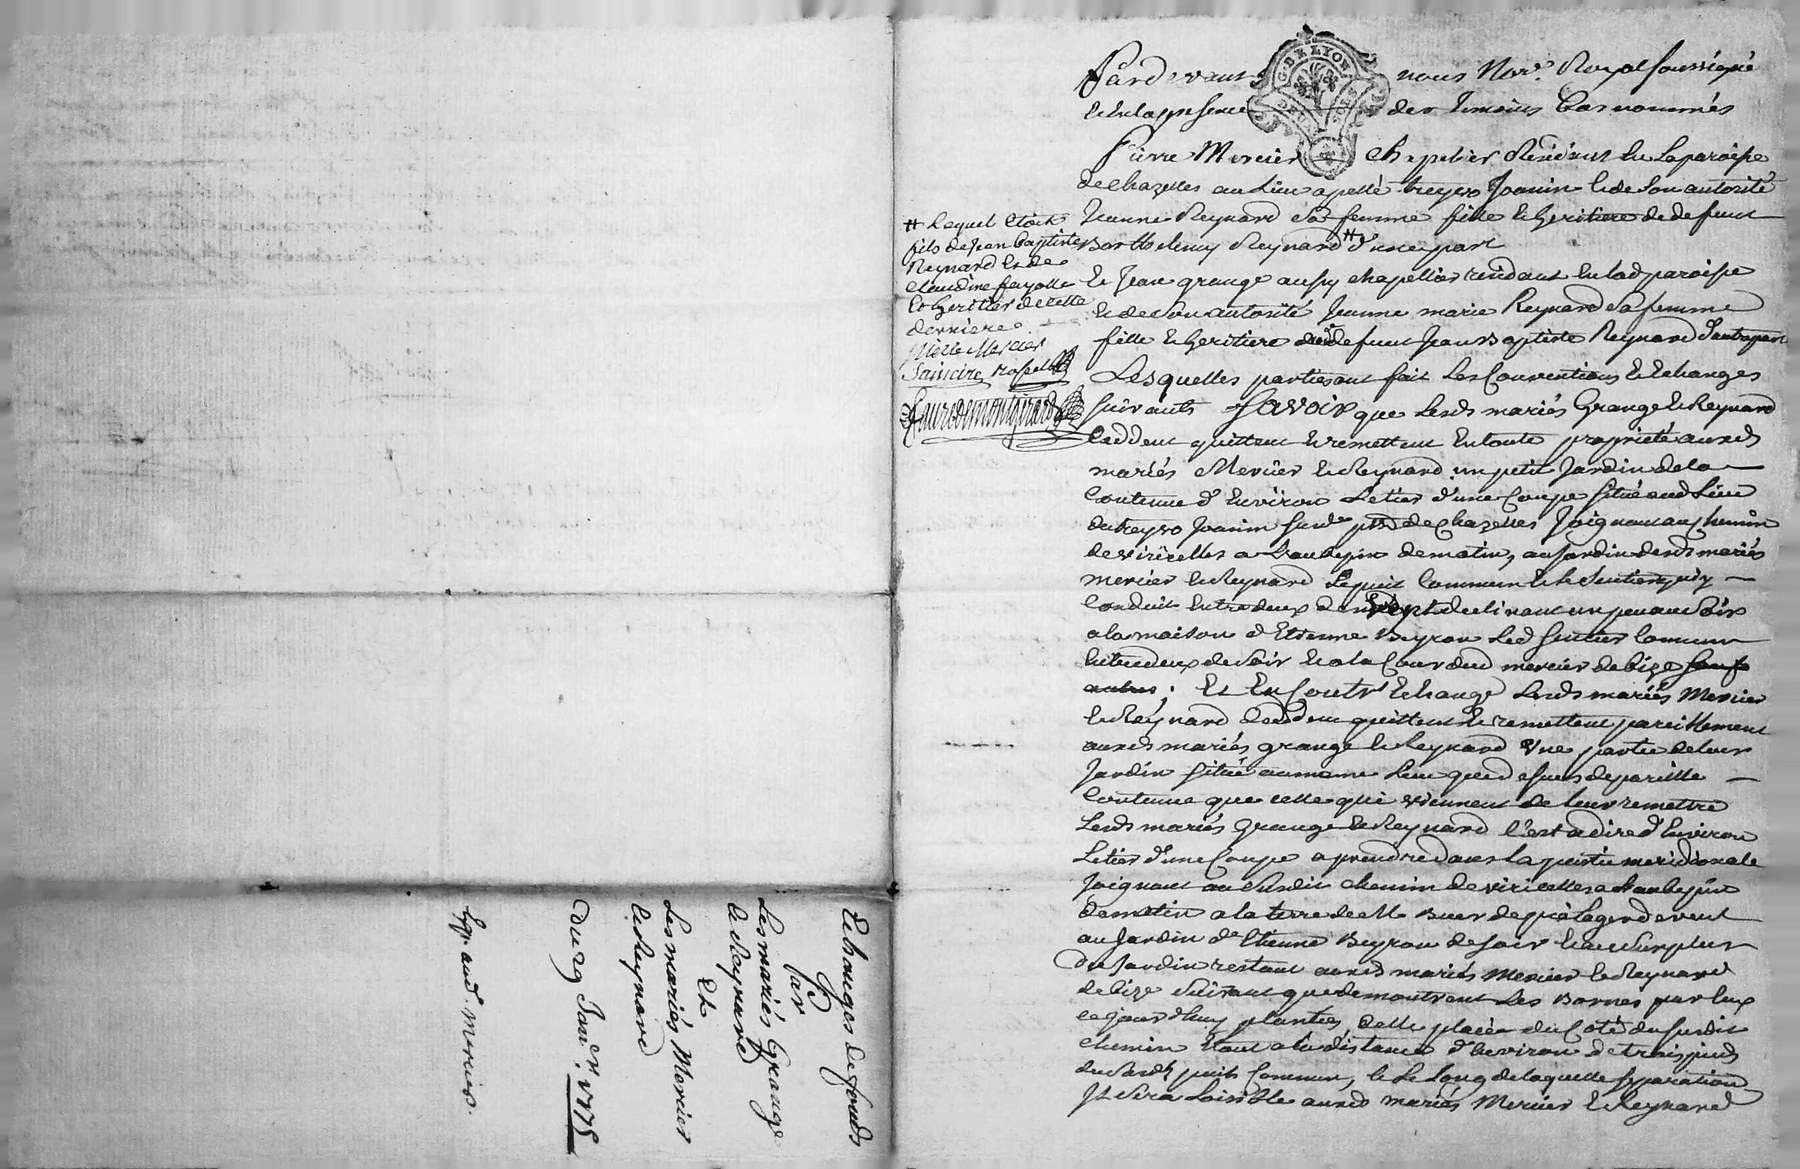 Pardevant nous Nore. Royal soussigné
et en la presence des temoins bas nommés
Pierre Mercier chapelier Residant en la paroisse
de chazelles au Lieu apellé treyve Joanin et de son autorité
Jeanne Reynard sa femme fille et heritiere de defunt
Barthelemy Reynard # d'une part
et Jean grange aussy chapellier residant en lad paroisse
et de son autorité Jeanne marie Reynard sa femme
fille et heritiere de defunt Jean Baptiste Reynard d'autre part
Lesquelles parties ont fait Les Conventions et Echanges
suivants Savoir que Lesds mariés Grange et Reynard
Ceddent quittent et remettent en toute proprieté auxds
mariés Mercier et Reynard un petit Jardin de la
Contenue d'Environ Le tier d'une Coupe situé aud Lieu
du treyve Joanin susde psse de Chazelles Joignant au chemin
de viricelles a St aubepin de matin, au Jardin desds mariés
mercier et Reynard Le puit Commun et le sentier quy
Conduit entre deux de vent declinant un peu au soir
a la maison d'Etienne Beyron Led sentier Commun
entre deux de soir et a la Cour dud mercier de bize sauf
autres ; Et En Contr'Echange Lesds mariés Mercier
et Reynard Ceddent quittent et remettent pareillement
auxds mariés grange et Reynard Une partie de leur
Jardin situé au meme Lieu que dessus de pareille
Contenue que celle que viennent de leur remettre
Lesds mariés Grange et Reynard C'est a dire d'Environ
Le tier d'une Coupe a prendre dans La partie meridionale
Joignant au susdit chemin de viricelles a St aubepin
de matin a la terre de de vent
au Jardin d'Etienne Beyron de soir et au surplus
du Jardin restant auxds mariés Mercier et Reynard
de bize suivant que demontrent Les Bornes par Eux
ce jourd'huy plantées, Celle placée du Coté du susdit
chemin Etant a la distance d'Environ de trois pieds
du susdt puit Commun, et Le Long de laquelle separation
Il sera Loisible auxds mariés Mercier et Reynard
# Lequel Etoit
fils de Jean baptiste
Reynard et de
Claudine fayolle
et heritier de cette
derniere
pierre Mercier
Faure de montgirard
Echanges de fonds
Par
Les mariés Grange
et Reynard
Et
Les mariés Mercier
et Reynard
Du 29 Janer. 1775
Exp. aud. Mercier.